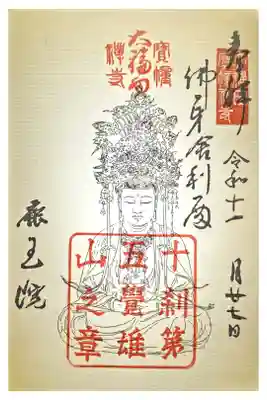 奉拝
令和十一
月廿七日
佛牙舎利殿
大福田
寶幢
禅寺
十刹第
五覺雄
山之章
鹿王院